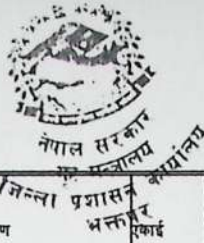 नेपाल सरकार
गृह मन्त्रालय
जिल्ला प्रशासन कार्यालय
भक्तपुर
ण
एकाई